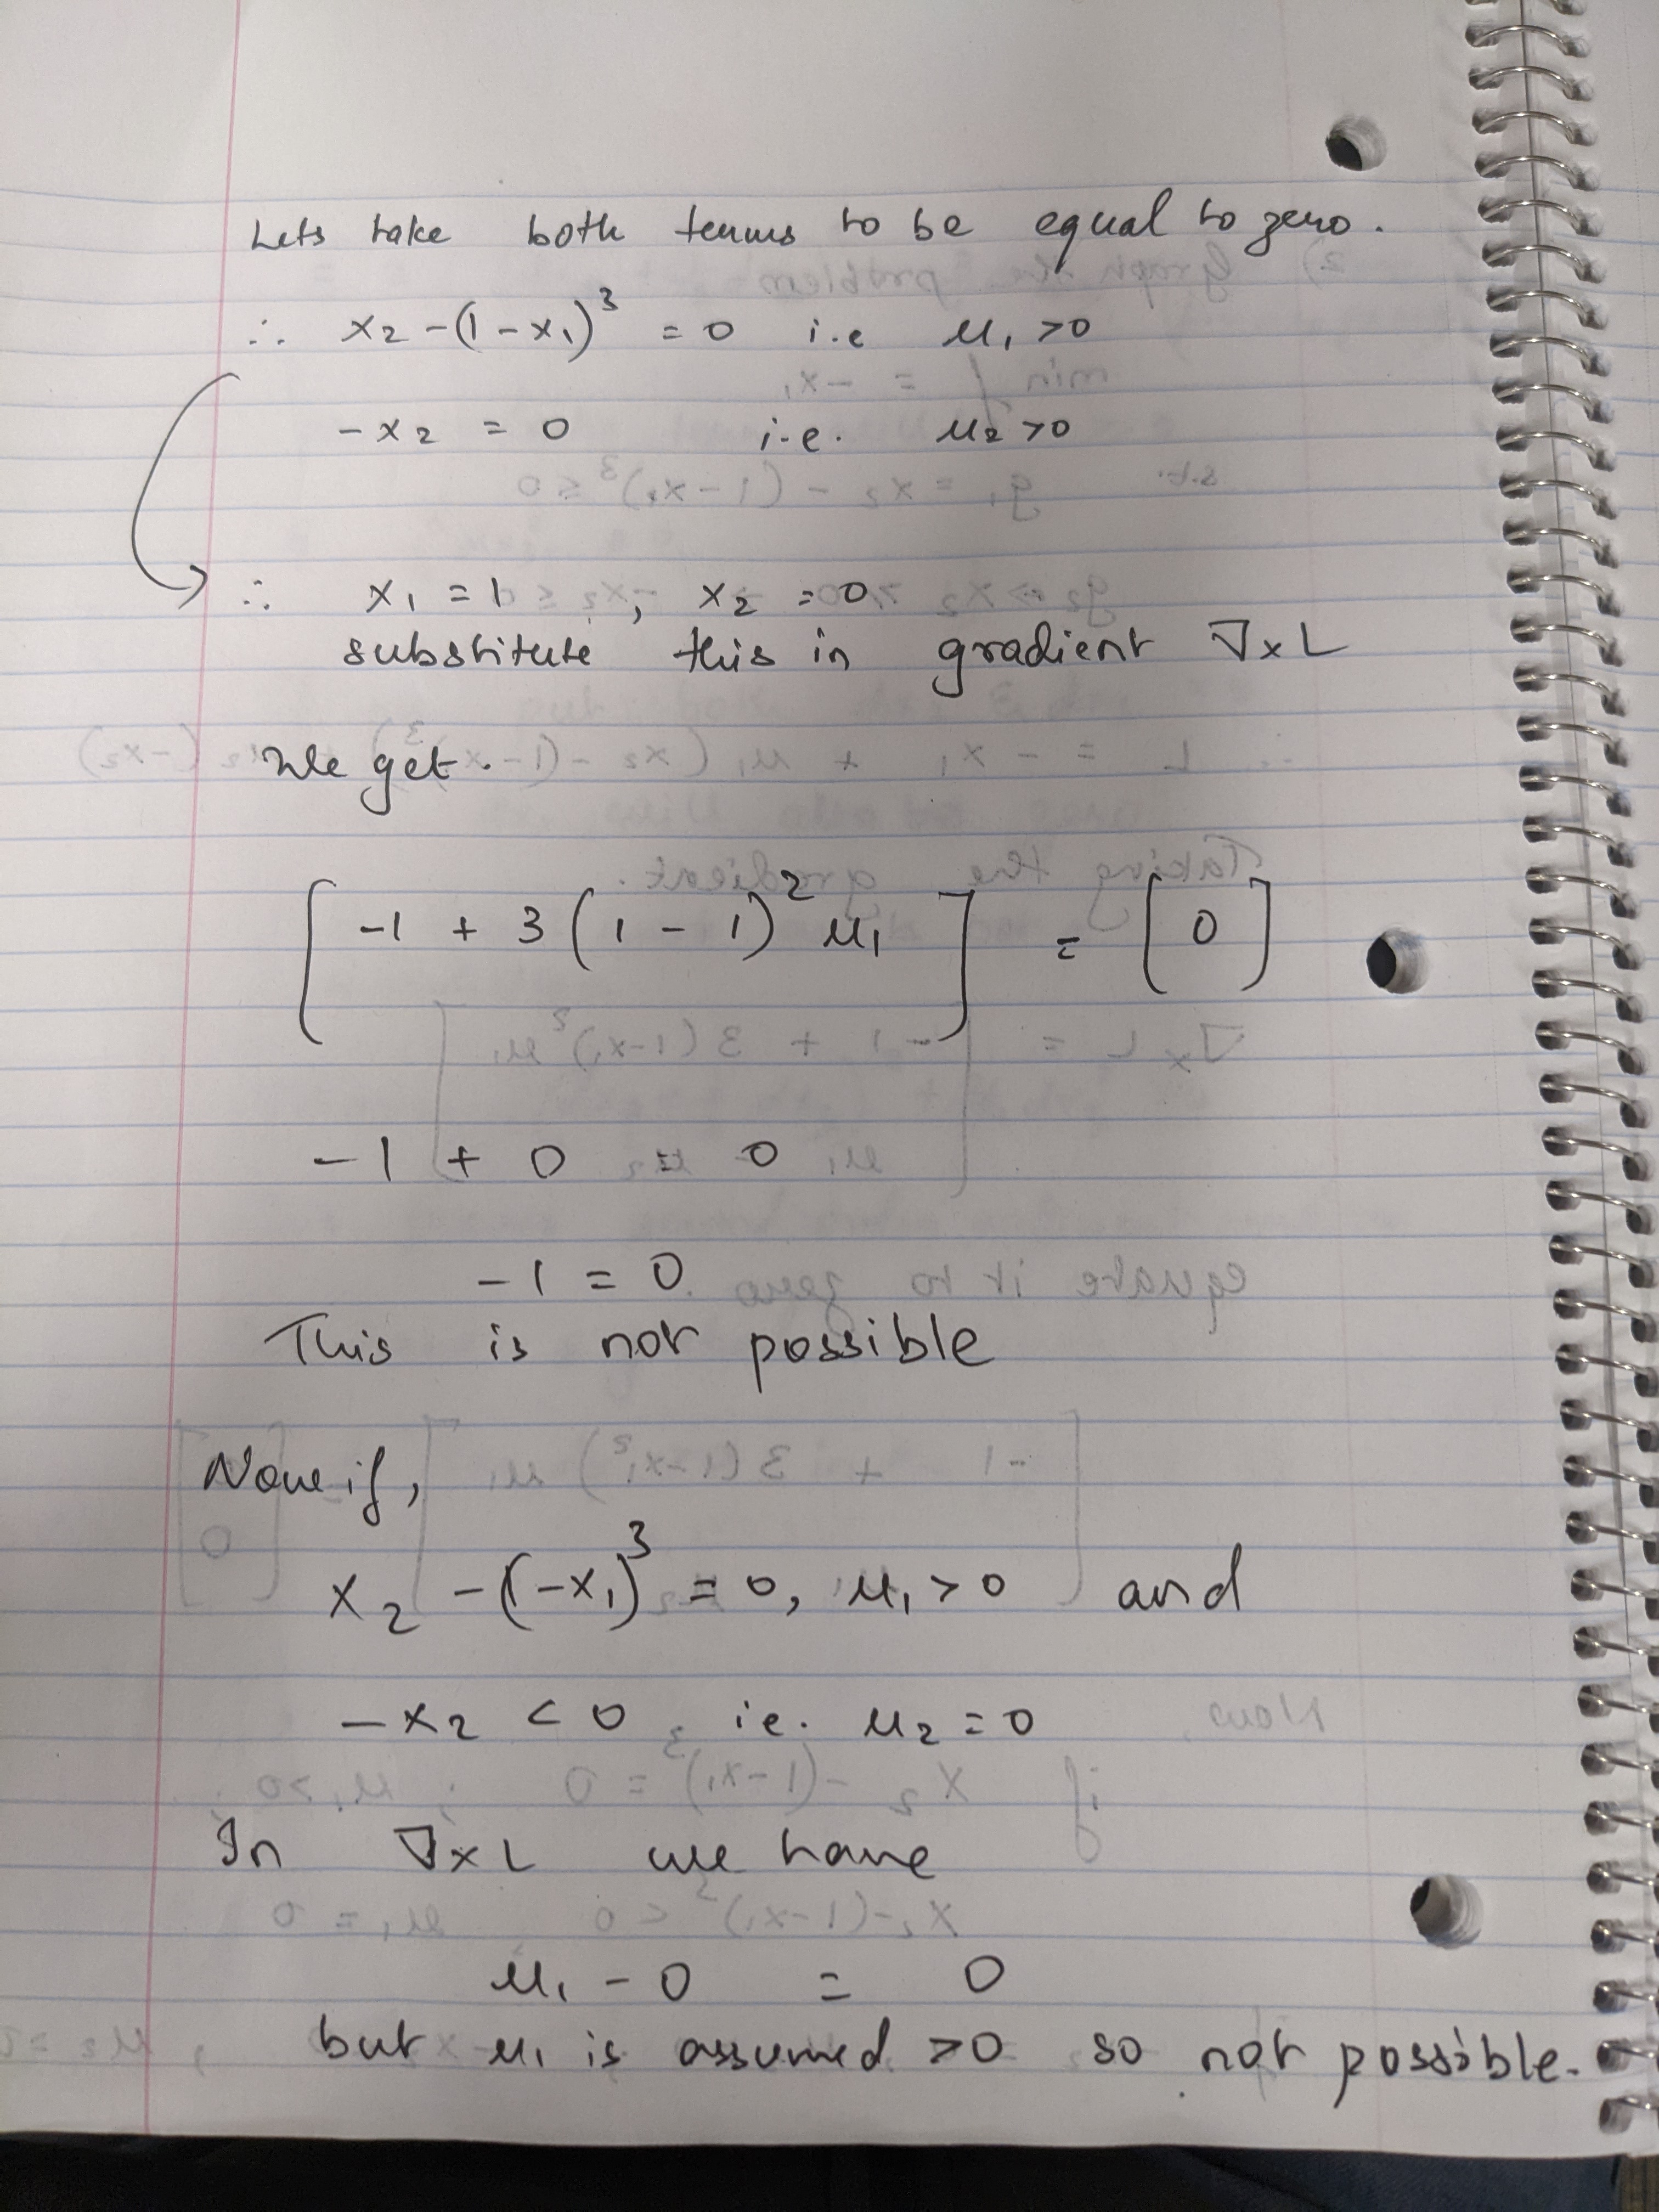 Lets take both terms to be equal to zero.
∴ x₂ - (1 - x₁)³ = 0 i.e μ₁ > 0
- x₂ = 0 i.e. μ₂ > 0
∴ x₁ = 1, x₂ = 0
substitute this in gradient ∇ₓL
We get.
[ -1 + 3 (1 - 1)² μ₁ ] = [ 0 ]
-1 + 0 = 0
-1 = 0
This is not possible
Now if,
x₂ - (1-x₁)³ = 0, μ₁ > 0 and
- x₂ < 0 ie. μ₂ = 0
In ∇ₓL we have
μ₁ - 0 = 0
but μ₁ is assumed >0 so not possible.